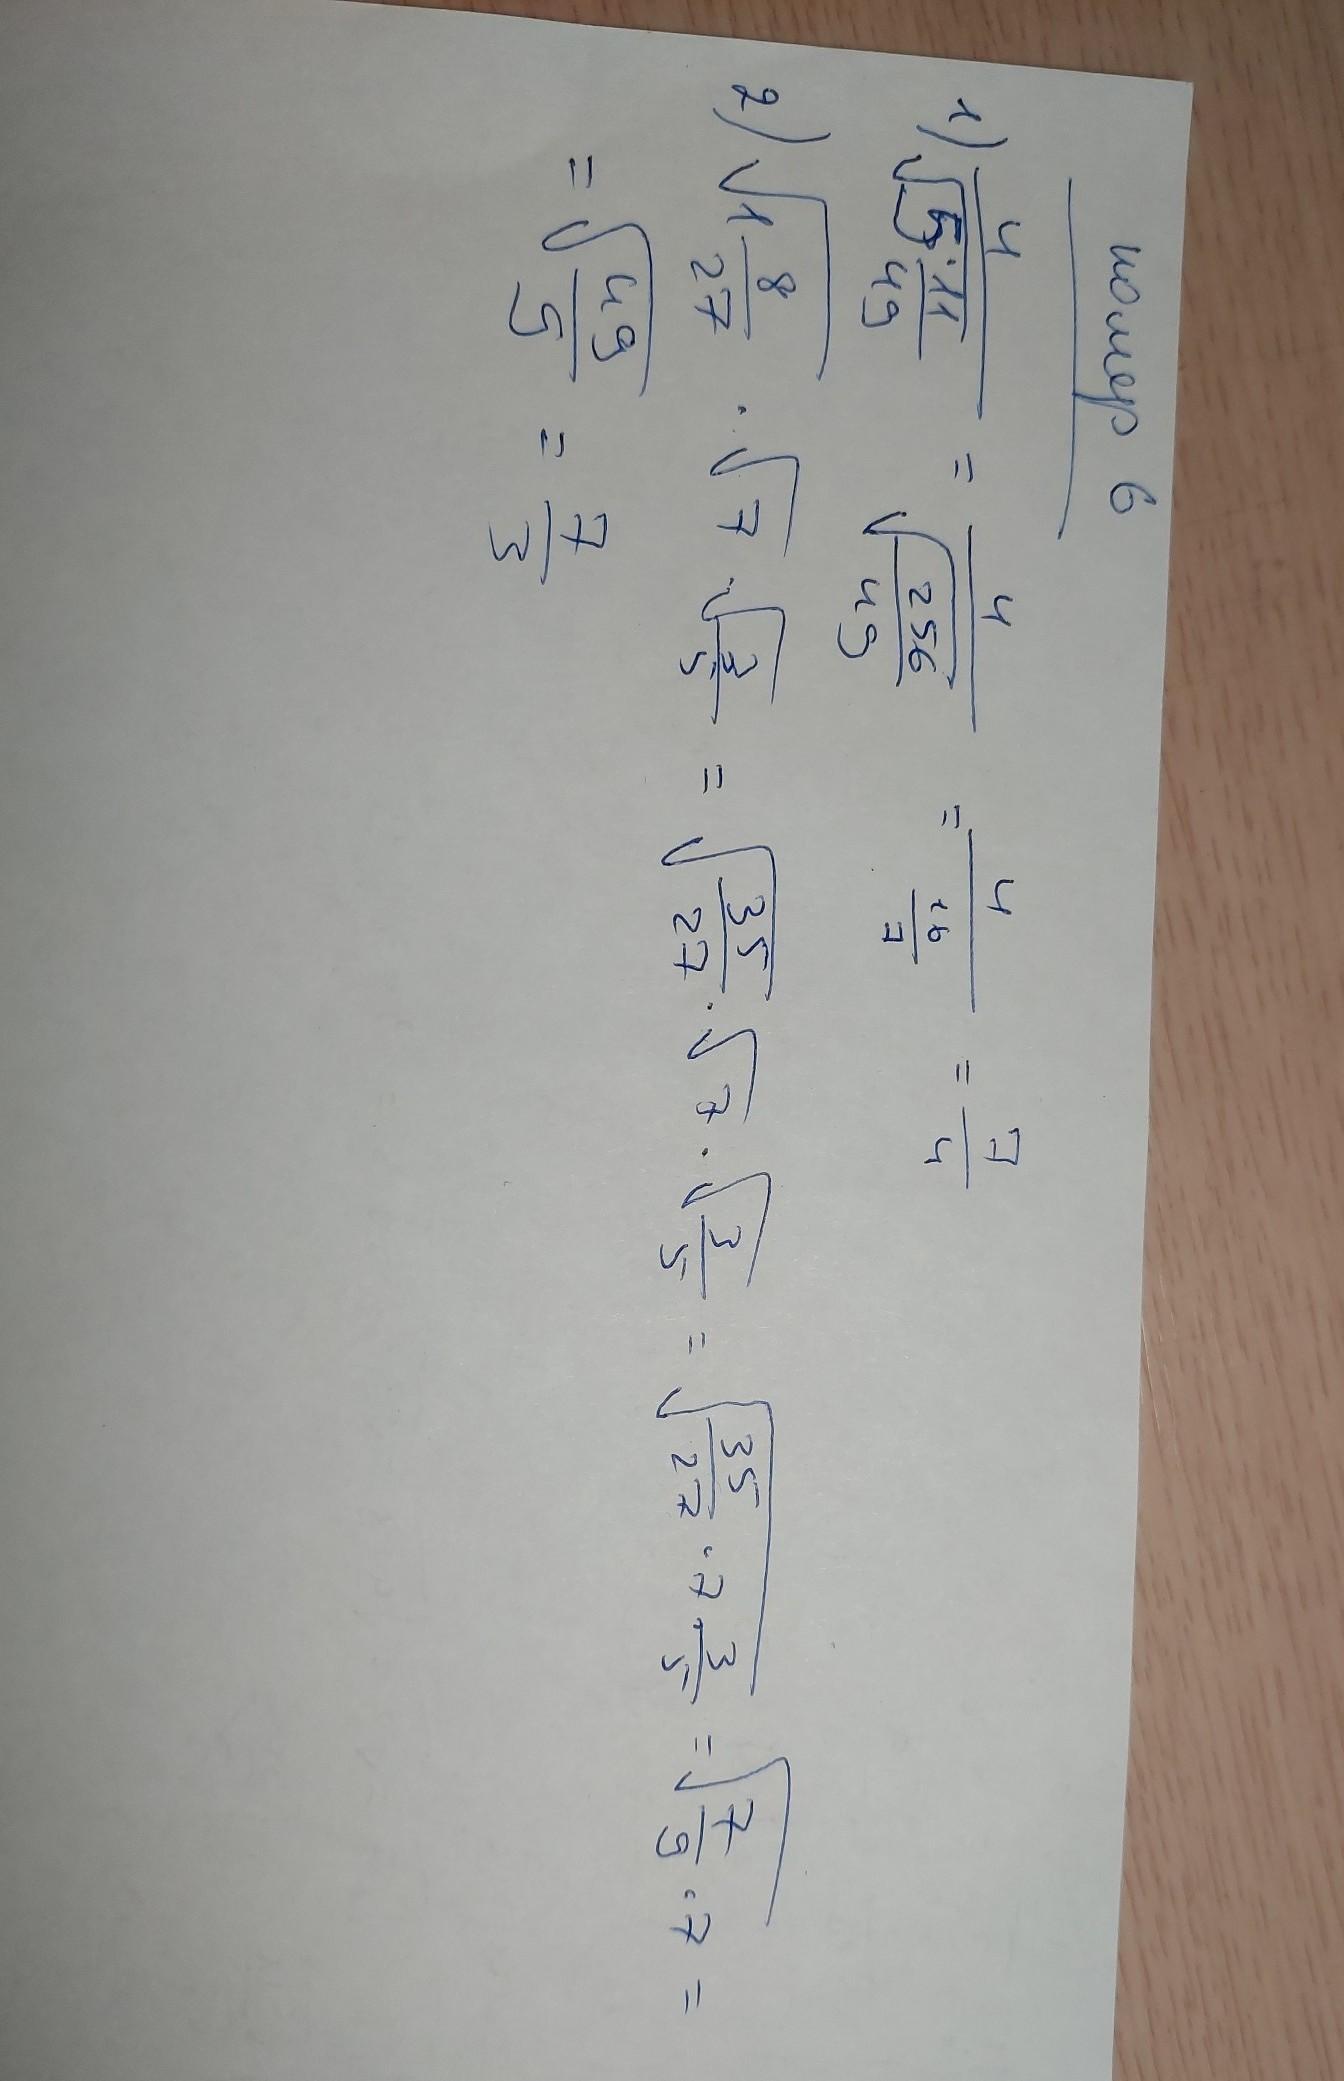 номер 6
1) 4/√(5·11/49) = 4/√(256/49) = 4/(16/7) = 7/4
2) √(1 8/27) · √7 · √(3/5) = √(35/27) · √7 · √(3/5) = √(35/27 · 7 · 3/5) = √(7/9 · 7) =
= √(49/5) = 7/3